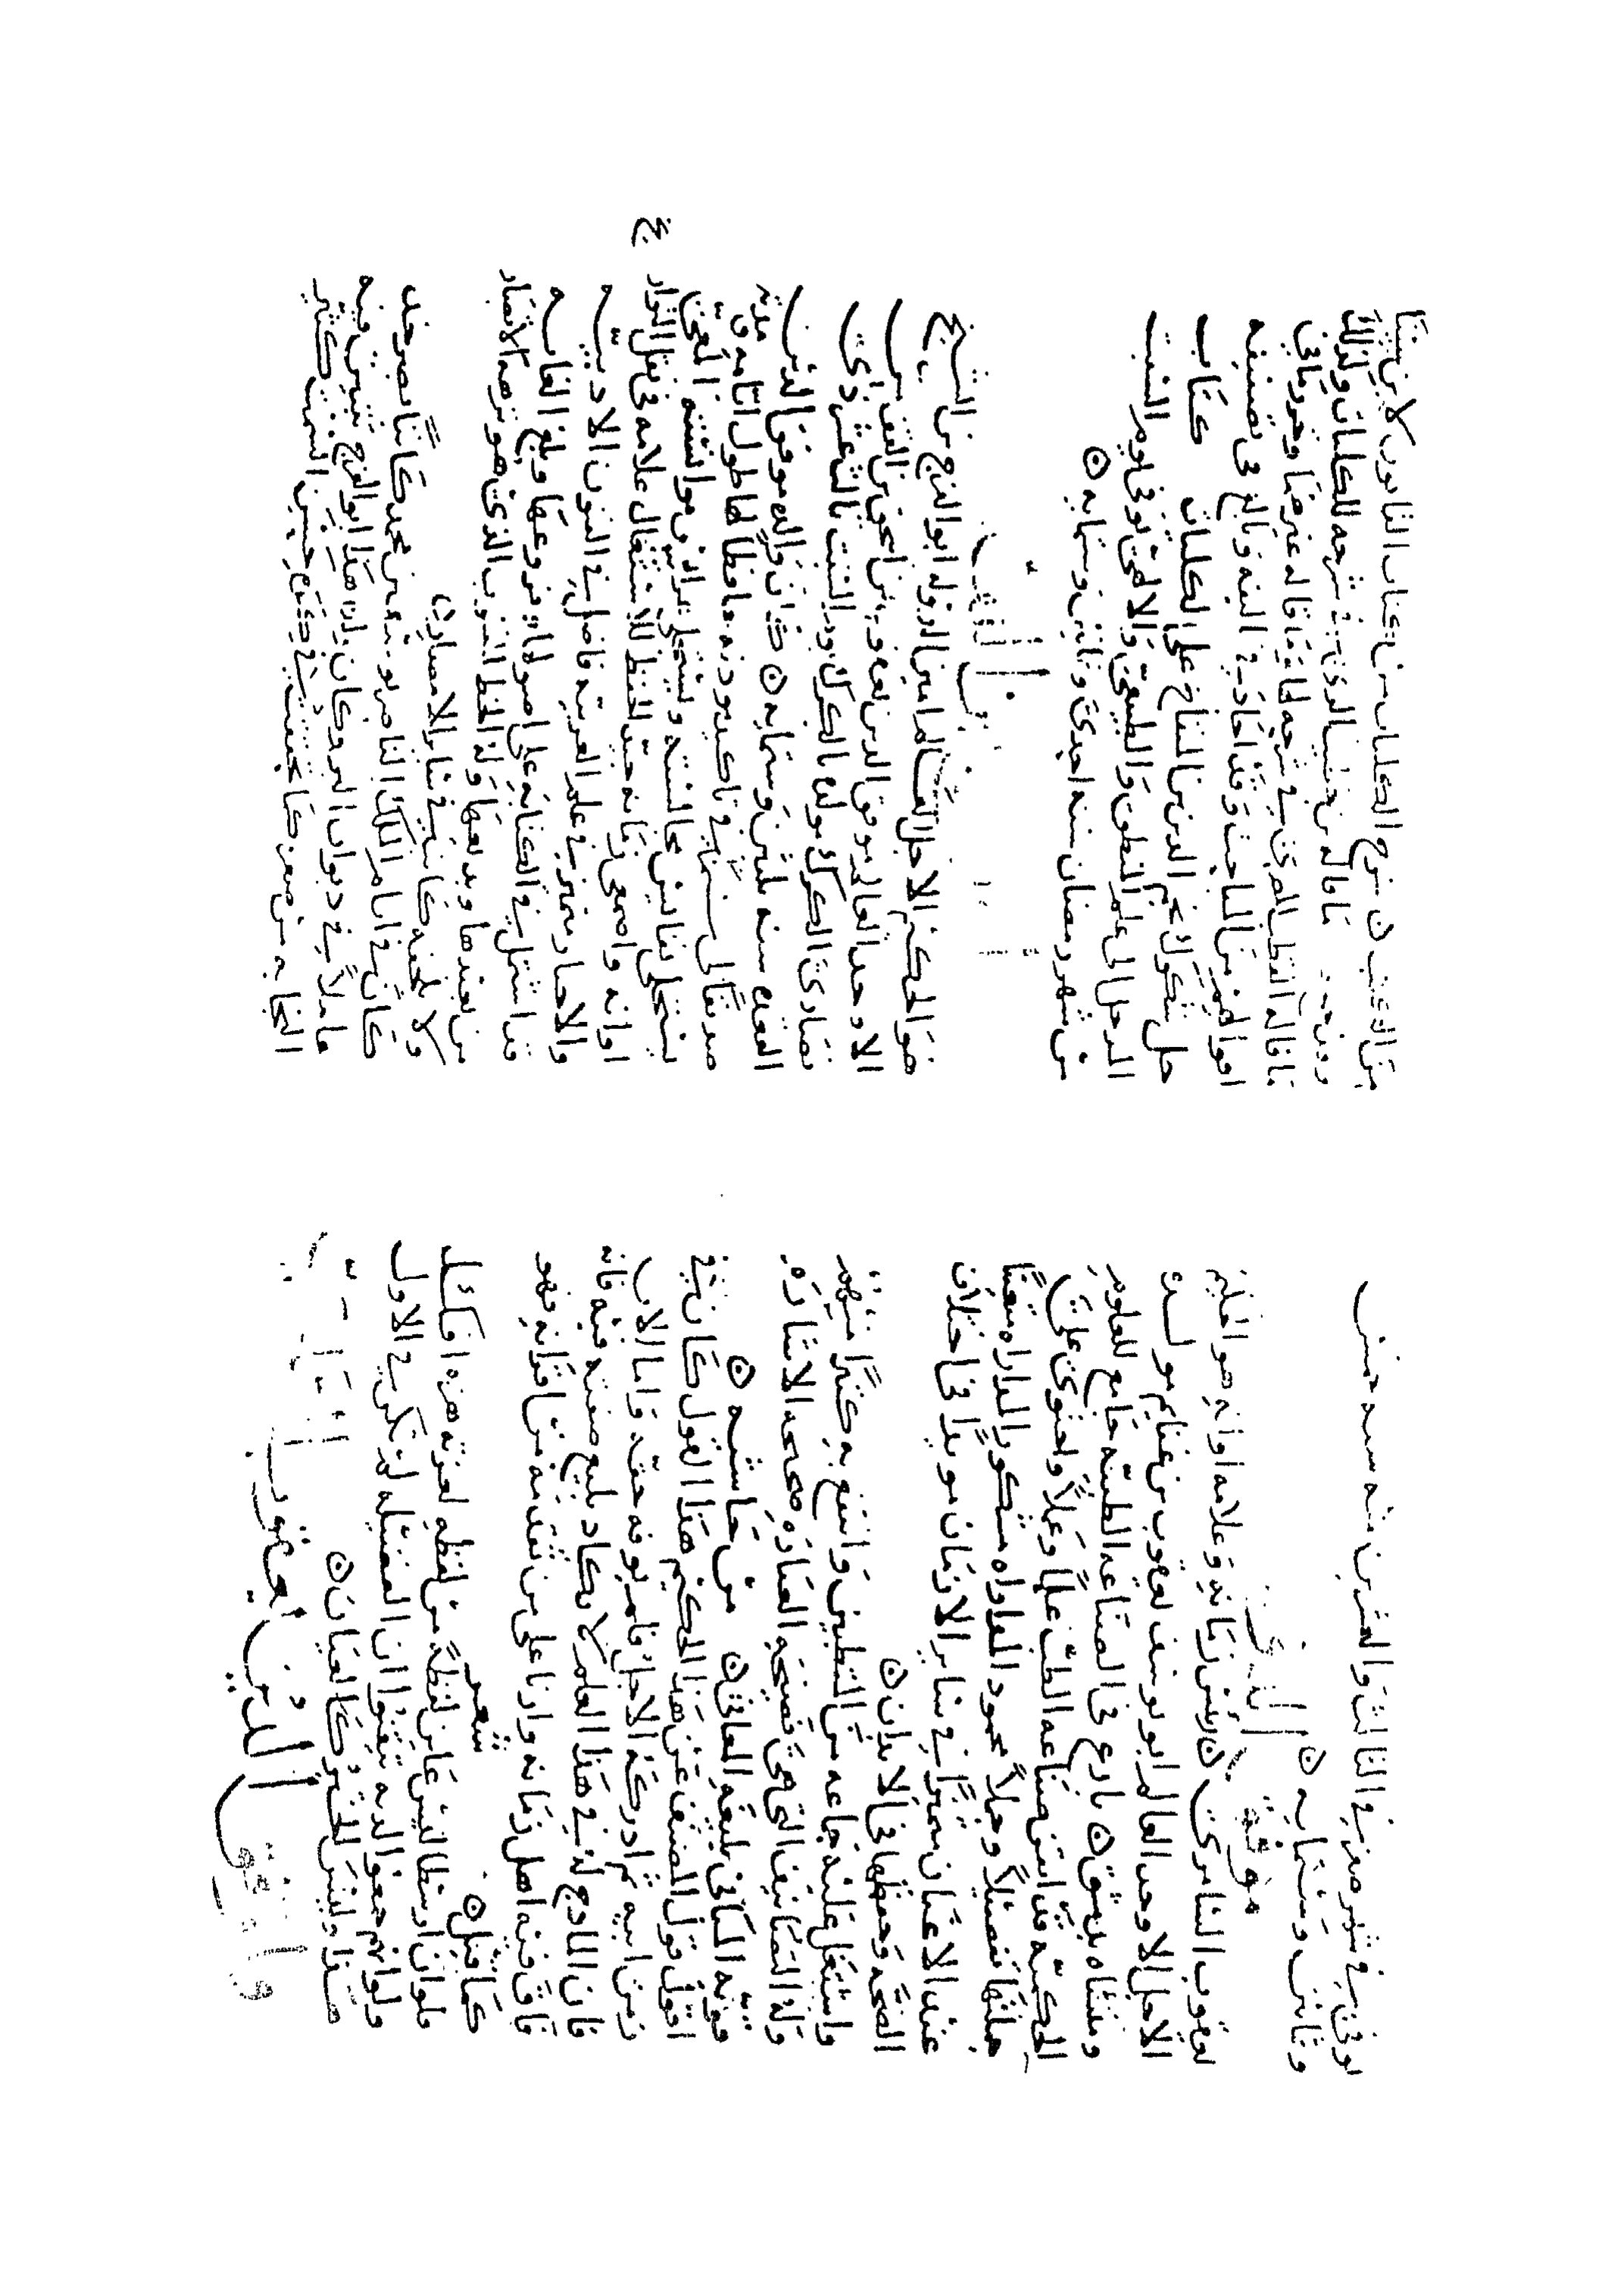 توفى في شهر صفر في الثالث والعشرين منه سنه خمس
وثمانين وستمايه ۞
موفق الدين
يعقوب السامري ۞ رئيس زمانه وعلامه اوانه هو الحكيم
الاجل الاوحد العالم ابو يوسف يعقوب بن غنايم مولده
ومنشاه بدمشق ۞ بارع في الصناعه الطبيه جامع للعلوم
الحكميه قد اتقن صناعه الطب علماً وعملاً واحتوى على
جملتها تفصيلاً وجملاً محمود المداواه مشكور المداراه متعيناً
عند الاعيان متميزاً في ساير الازمان مويدا في اختلاق
الصحه وحفظها في الابدان ۞
واشتغل عليه جماعه من المتطببين وانتفع به كثيراً منهم
وله التصانيف التي هي فصيحه العباره صحيحه الاشاره
قويه المباني بليغه المعاني ۞ من حاشيه ۞
اقول قول المصنف عن هذا الحكيم هذا القول كان في
زمن ابيه ثم ادركه الاجل فلم يوفه حقه واما الان
فان المادح له في هذا العلم لا يكاد يبلغ صفته فيه فانه
فاق فيه اهل زمانه على من تقدمه من اقرانه فهو
كما قيل ۞ شعر
فلو ان عاين لفظةً من لفظه لعزته هزه افكل
ولو انهم اليه تيقنوا ان الفضيله لم تكن في الاول
هذا وليس الخبر كالعيان ۞
ولموفق الدين يعقوب
من الكتب ۞ شرح الكليات من كتاب القانون لابن سينا
وقد جمع فيه ما قاله بن خطيب الري في شرحه للكليات وكذلك
ما قاله القطب المصري في شرحه لها وما قاله غيرهما وحرر ما في
اقوالهم من المباحث وقد اجاد في تاليفه وبالغ في تصنيفه
حل شكوك نجم الدين بن المنفاخ على الكليات كتاب
المدخل الى علم المنطق والطبيعي والالهي توفى يوم السبت
من شهر رمضان سنه احدى وثمانين وستمايه ۞
هو الحكيم الاجل العالم امين الدوله ابو الفرج بن الشيخ
الاوحد العالم موفق الدين يعقوب بن اسحق بن القف من
نصارى الكرك مولده بالكرك يوم السبت ثالث عشر ذي
القعده سنه ثلثين وستمايه ۞ كان والده موفق الدين
صديقاً لي في تاكيد موده حافظاً لها طول ايامه ومدته
تستحلى نفايس مجالسته وتستجلى عرايس موانسته المعي
اوانه واصمعي زمانه جيد الحفظ للاشعار علامه في نقل التواريخ
والاخبار متميز في علم العربيه فاضل في الفنون الادبيه
قد اشتمل في الكتابه على اصولها وفروعها وبلغ الغايه
من بعيدها وبديعها وله الخط المنسوب الذي هو نزهه الابصار
ولا يلحقه كاتب في ساير الامصار ۞
كان في ايام الملك الناصر يوسف بن محمد كاتباً بصرخد
عاملاً في ديوان البر وكان ولده هذا ابو الفرج تتبين فيه
النجابه من صغره كما تحققت في كبره حسن السمت كثير